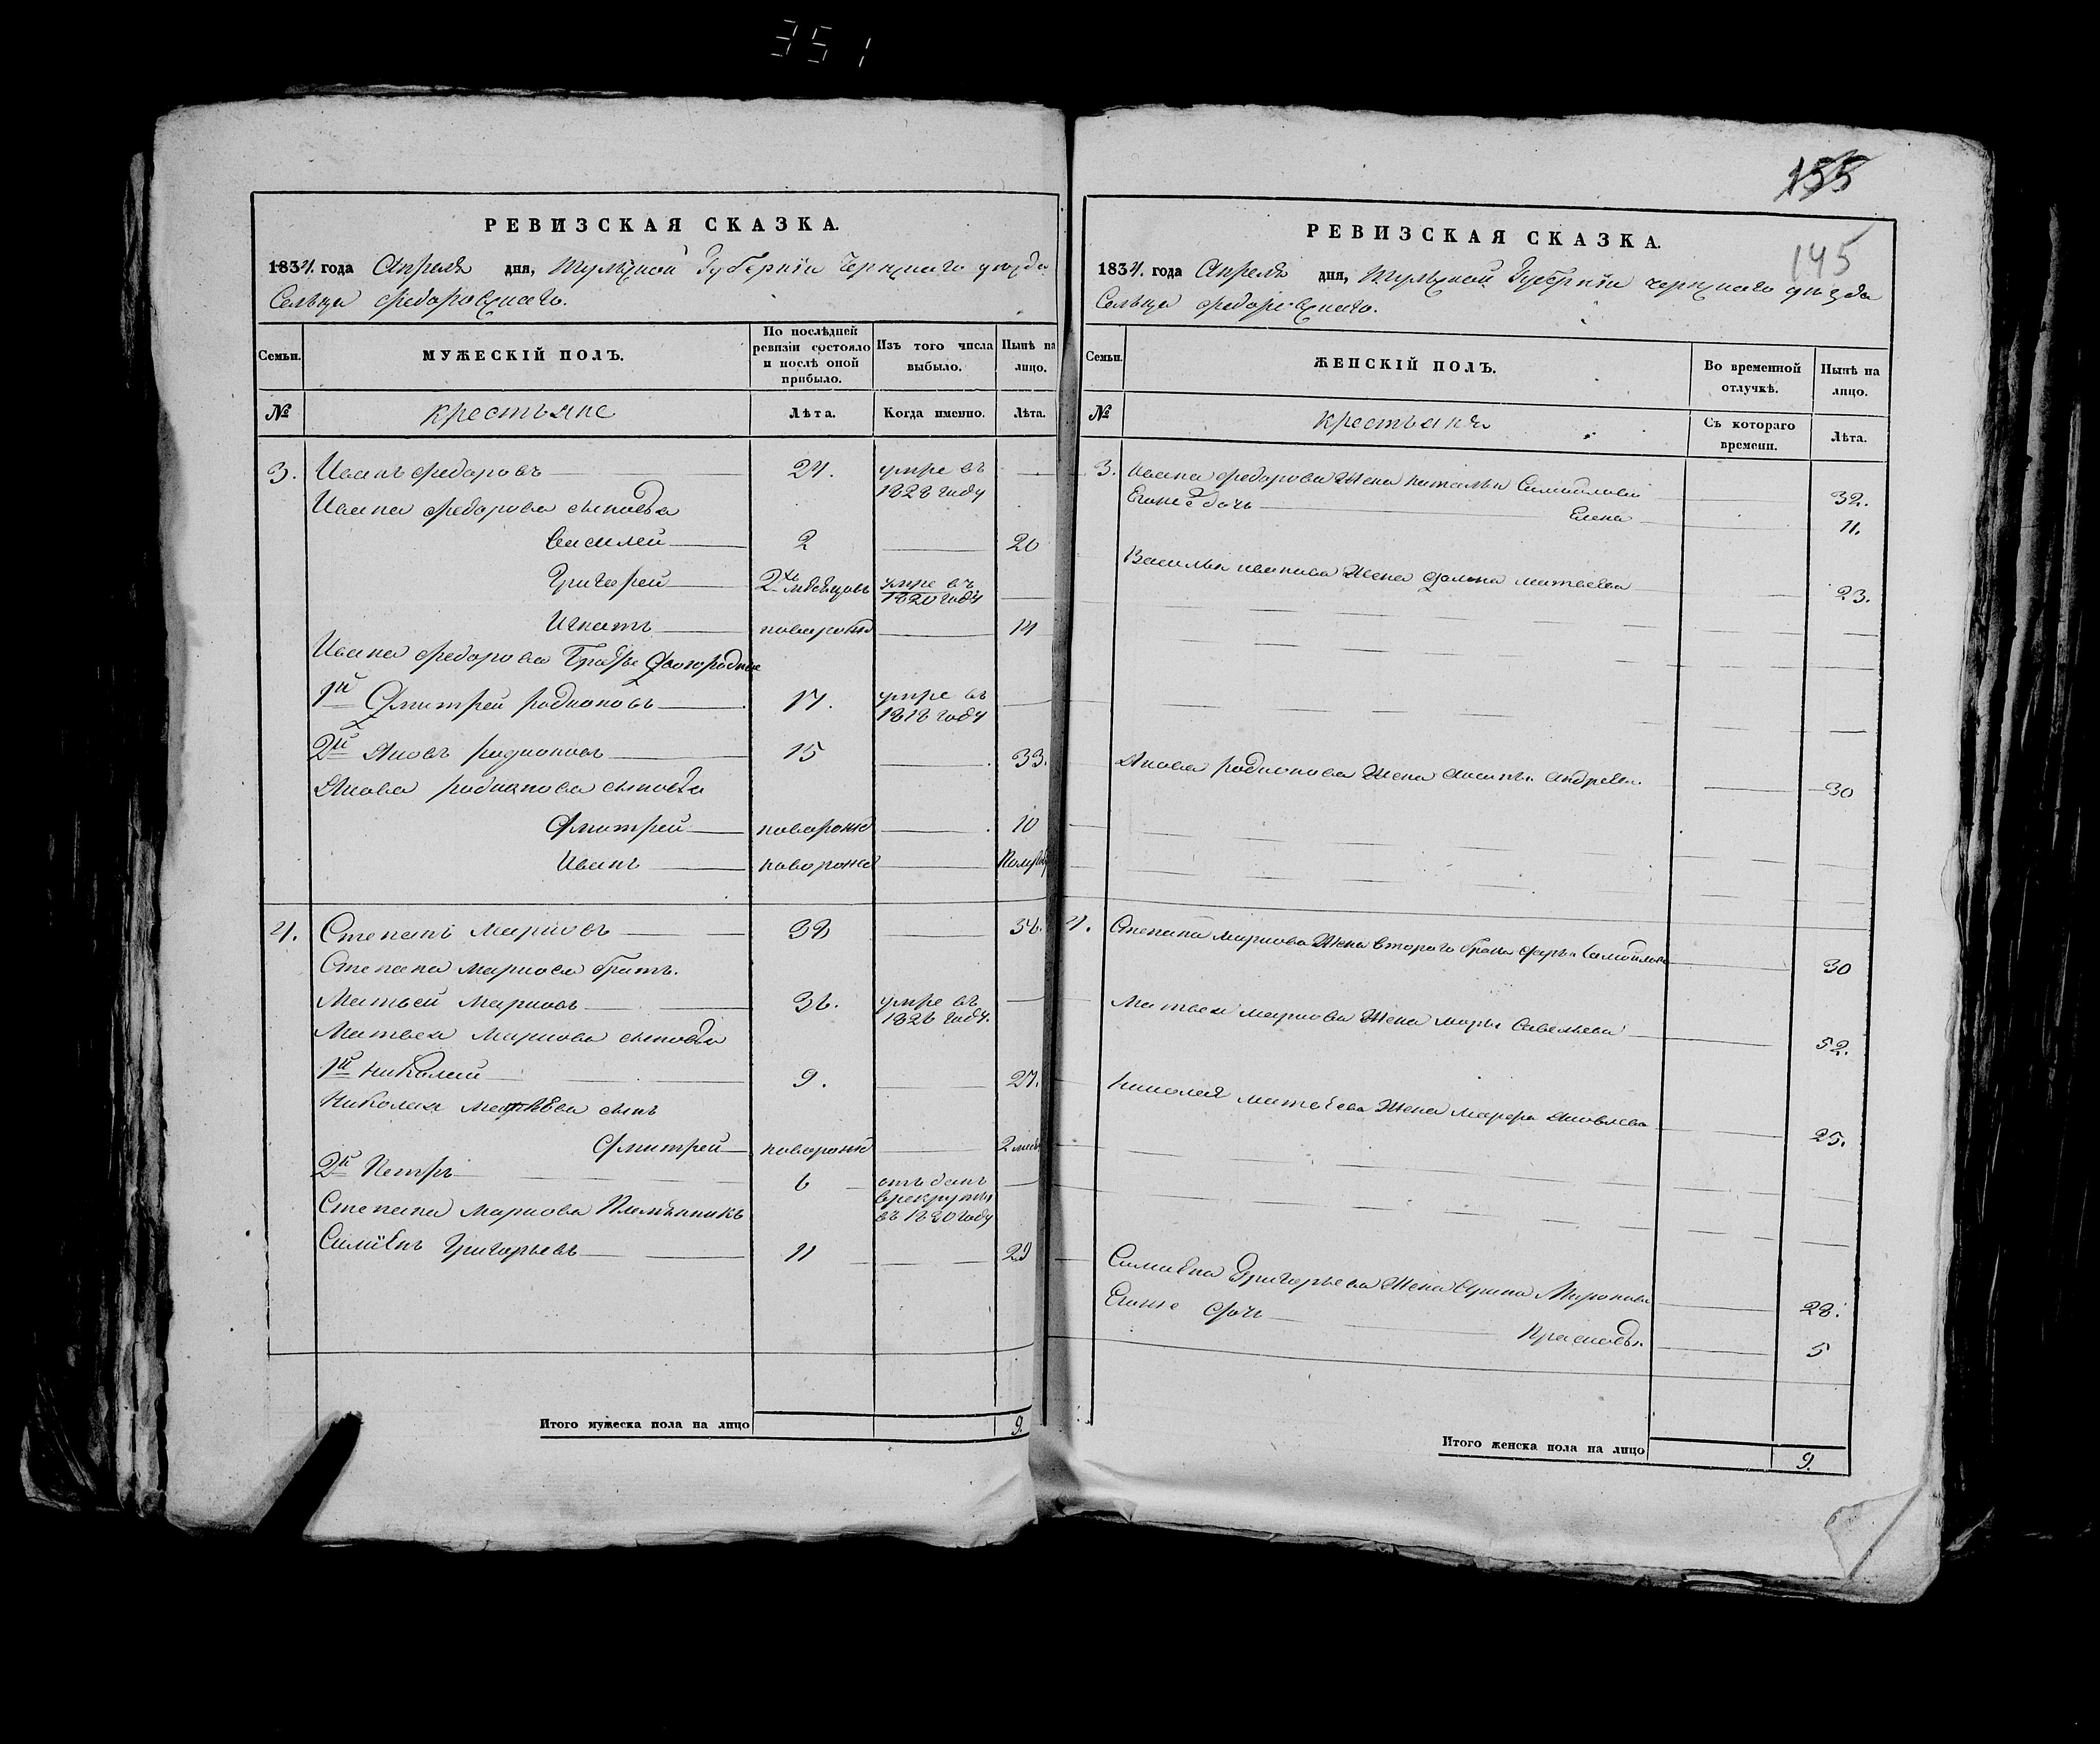 351
155
145
РЕВИЗСКАЯ СКАЗКА.
1834. года Апреля дня, Тульской Губернiи Чернскаго уезда
Сельца Федоровскаго.
Семьи.
МУЖЕСКІЙ ПОЛЪ.
По послѣдней ревизіи состояло и послѣ оной прибыло.
Изъ того числа выбыло.
Нынѣ на лицо.
№
крестьяне
Лѣта.
Когда именно.
Лѣта.
3. Иванъ Федоровъ 24. умре въ 1828 году
Ивана Федорова сыновья
Василей 2 20
Григорей 2хъ месѣцовъ умре въ 1820 году
Игнатъ новорожд 14
Ивана Федорова Братья Двоюродные
1й Дмитрей Родионовъ 17. умре въ 1818 году
2й Яковъ Родионовъ 15 33.
Якова Родионова сыновья
Дмитрей новорожд 10
Иванъ новорожд Полуго
4. Степанъ Марковъ 38 54.
Степана Маркова братъ.
Матвей Марковъ 36. умре въ 1826 году.
Матвея Маркова сыновья
1й Николай 9. 27.
Николая Матвѣева сынъ
Дмитрей новорожд 2 мес
2й Петръ 6 отъданъ врекруты въ 1830 году
Степана Маркова Племянникъ
Симіонъ Григорьевъ 11 29
Итого мужеска пола на лицо 9.
РЕВИЗСКАЯ СКАЗКА.
1834. года Апреля дня, Тульской Губернiи чернскаго уезда
Сельца Федоровскаго.
Семьи.
ЖЕНСКІЙ ПОЛЪ.
Во временной отлучкѣ.
Нынѣ на лицо.
№
крестьяня
Съ котораго времени.
Лѣта.
3. Ивана Федорова Жена Наталья Самойлова 32.
Егоже дочь Елена 11.
Василья иванова Жена матвеева 23.
Якова Родионова Жена Андреева 30
4. Степана Маркова Жена второго брака Дарья Самойлова 30
Матвея Маркова Жена Марья Савельева 52.
Николая Матвеева Жена Марфа Яковлева 25.
Симиона Григорьева Жена Арина Миронова 28.
Егоже Дочь Прасковья 5
Итого женска пола на лицо 9.